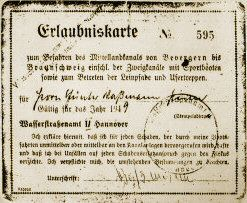 Erlaubniskarte № 595
zum Befahren des Mittellandkanals von Bevergern bis
Braunschweig einschl. der Zweigkanäle mit Sportbooten
sowie zum Betreten der Leinpfade und Ufertreppen.
für Herrn
Gültig für das Jahr 1949
Wasserstraßenamt II Hannover
Ich erkläre hiermit, daß ich jeden Schaden, der durch meine Boots-
fahrten unmittelbar oder mittelbar an den Kanalanlagen hervorgerufen wird,
und daß ich bei Unfällen auf jeden Schadenersatzanspruch gegen den Fiskus
verzichte. Ich verpflichte mich, die umstehenden Bestimmungen zu beachten.
Unterschrift: